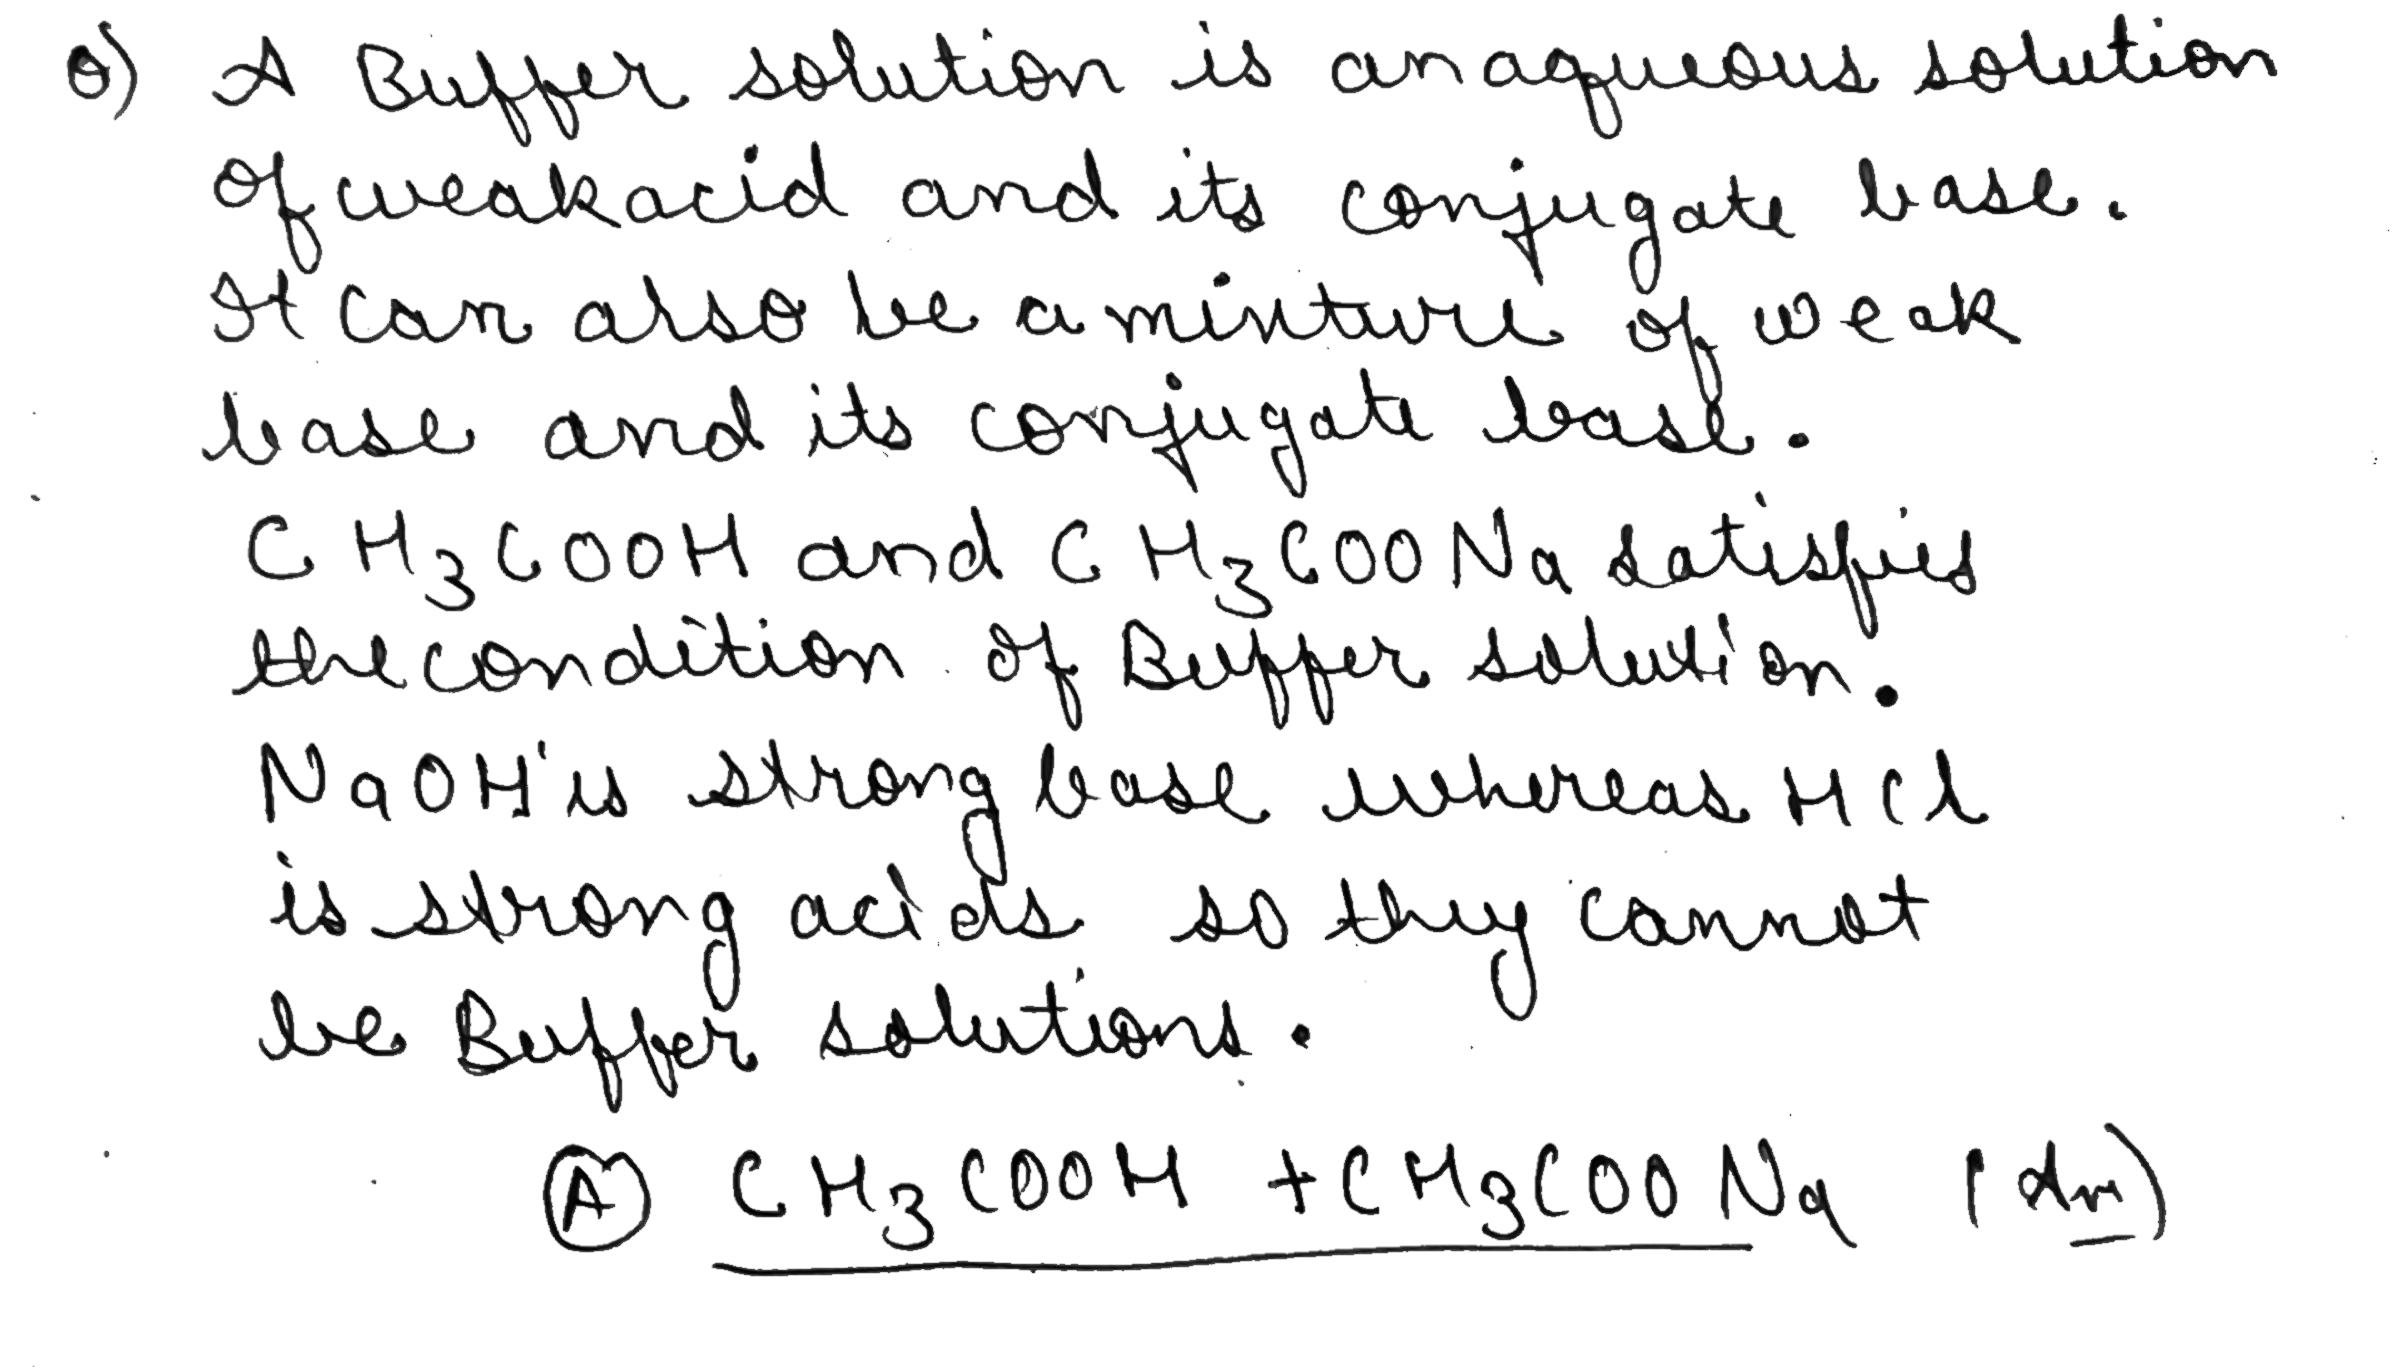 Q) A Buffer solution is an aqueous solution
of weak acid and its conjugate base.
It can also be a mixture of weak
base and its conjugate base.
CH3COOH and CH3COONa satisfies
the condition of Buffer solution.
NaOH is strong base whereas HCl
is strong acids so they cannot
be Buffer solutions.
(A) CH3COOH + CH3COONa (Ans)